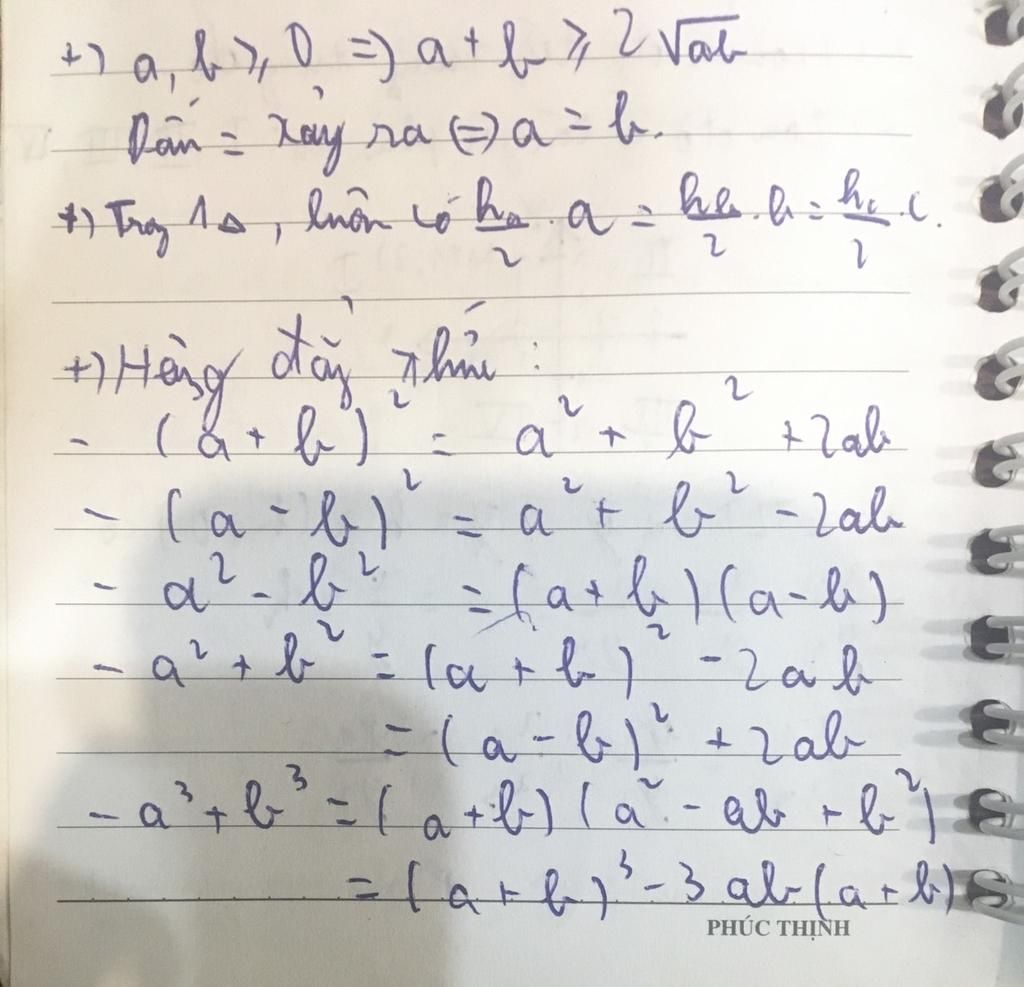 +) a, b ≥ 0 => a + b ≥ 2√ab
Dấu = xảy ra <=> a = b.
+) Trog 1 Δ, luôn có hₐ/2 . a = h_b/2 . b = h_c/2 . c.
+) Hằng đẳg thức :
- (a + b)² = a² + b² + 2ab
- (a - b)² = a² + b² - 2ab
- a² - b² = (a + b)(a - b)
- a² + b² = (a + b)² - 2ab
= (a - b)² + 2ab
- a³ + b³ = (a + b)(a² - ab + b²)
= (a + b)³ - 3ab(a + b)
PHÚC THỊNH